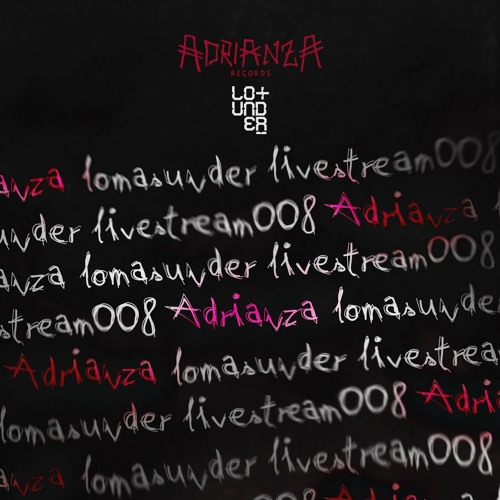 ADRIANZA
RECORDS
LO+
UND
ER
anza lomasunder livestream008
under livestream008 Adrianza l
anza lomasunder livestream008
stream008 Adrianza lomasunde
Adrianza lomasunder livestrea
lomasunder livestream008 Adria
anza lomasunder livestream008